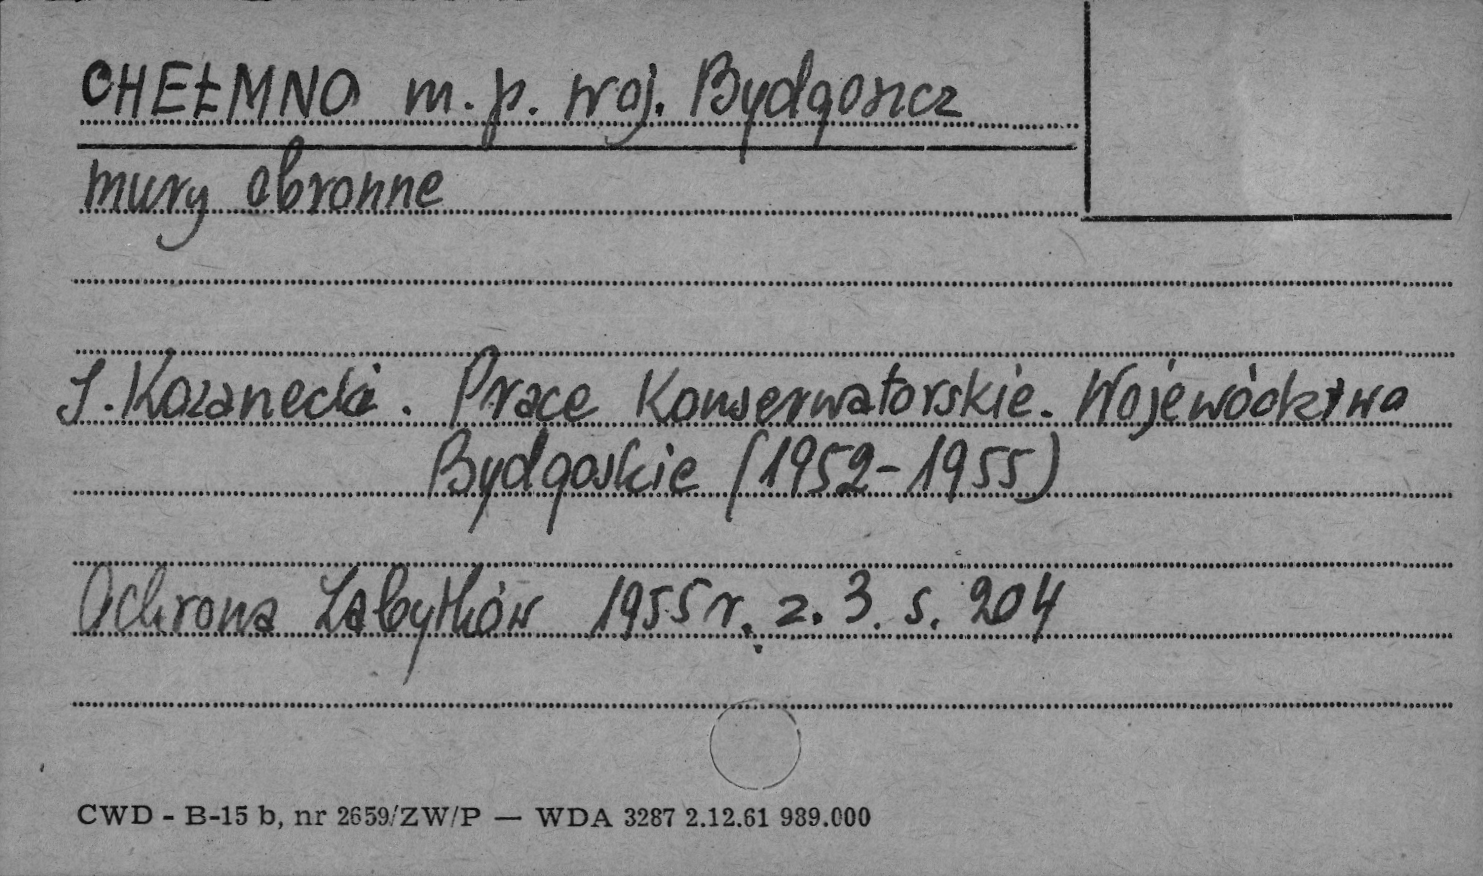 CHEŁMNO m. p. woj. Bydgoszcz
mury obronne
J. Kozanecki. Prace Konserwatorskie. Województwo
Bydgoskie (1952-1955)
Ochrona Zabytków 1955 r. z. 3. s. 204
CWD - B-15 b, nr 2659/ZW/P — WDA 3287 2.12.61 989.000